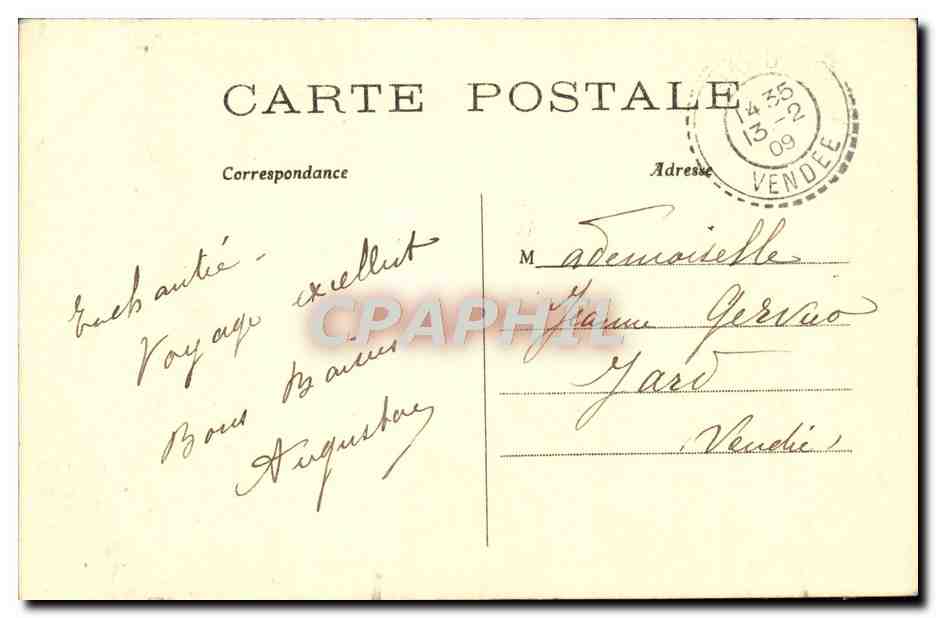 CARTE POSTALE
14 35
13 -2
09
VENDEE
Correspondance
Adresse
Enchantée -
Voyage excellent
Bons Baisers
Mademoiselle
Jeanne Gervais
Jard
(Vendée)
CPAPHIL